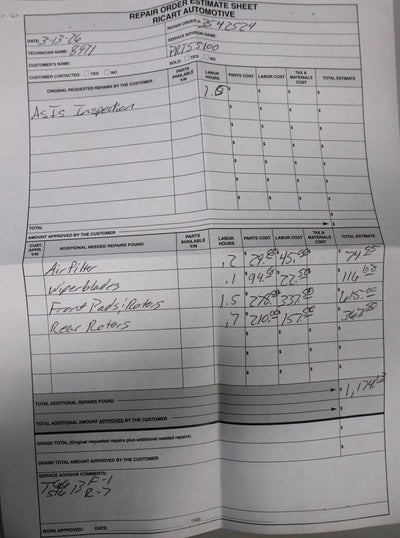 REPAIR ORDER ESTIMATE SHEET
RICART AUTOMOTIVE
DATE: 3-13-26 REPAIR ORDER # 3542524
TECHNICIAN NAME: 8971 SERVICE ADVISOR NAME:
CUSTOMER'S NAME:
CUSTOMER CONTACTED: YES NO SOLD: YES NO
ORIGINAL REQUESTED REPAIRS BY THE CUSTOMER PARTS AVAILABLE Y/N LABOR HOURS PARTS COST LABOR COST TAX & MATERIALS COST TOTAL ESTIMATE
AsIs Inspection $ $ $ $
TOTAL
AMOUNT APPROVED BY THE CUSTOMER
CUST. APPR. Y/N ADDITIONAL NEEDED REPAIRS FOUND PARTS AVAILABLE Y/N LABOR HOURS PARTS COST LABOR COST TAX & MATERIALS COST TOTAL ESTIMATE
Air Filter .2 $ $ 45.00 $ $
Wiperblades .1 $ $ 22.50 $ $
Front Pads; Rotors 1.5 $ 278.00 $ 337.00 $ $ 615.00
Rear Rotors .7 $ 210.00 $ 157.50 $ $ 367.50
TOTAL ADDITIONAL REPAIRS FOUND $
TOTAL ADDITIONAL AMOUNT APPROVED BY THE CUSTOMER $
GRAND TOTAL (Original requested repairs plus additional needed repairs) $
GRAND TOTAL AMOUNT APPROVED BY THE CUSTOMER $
SERVICE ADVISOR COMMENTS:
F-1
R-7
WORK APPROVED: DATE: